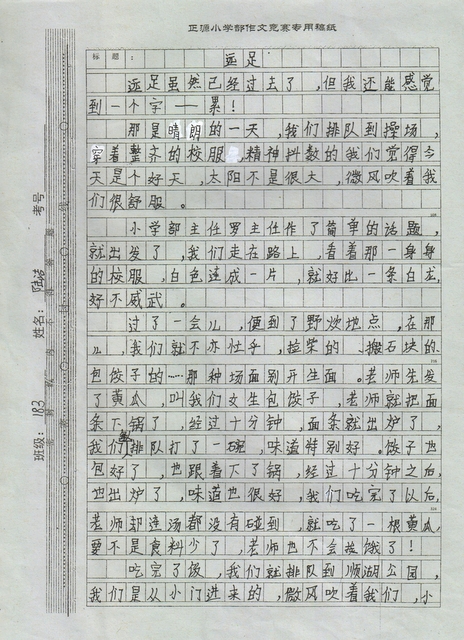 正源小学部作文竞赛专用稿纸
标题：远足
远足虽然已经过去了，但我还能感觉
到一个字——累！
那是晴朗的一天，我们排队到操场，
穿着整齐的校服，精神抖数的我们觉得今
天是个好天，太阳不是很大，微风吹着我
们很舒服。
小学部主任罗主任作了简单的话题，
就出发了，我们走在路上，看着那一身身
的校服，白色连成一片，就好比一条白龙，
好不威武。
过了一会儿，便到了野炊地点，在那
儿，我们就不亦忙乎，捡柴的、搬石块的、
包饺子的……那种场面别开生面。老师先发
了黄瓜，叫我们女生包饺子，老师就把面
条下锅了，经过十分钟，面条就出炉了，
我们排队打了一碗，味道特别好。饺子也
包好了，也跟着下了锅，经过十分钟之后，
也出炉了，味道也很好，我们吃完了以后，
老师却连汤都没有碰到，就吃了一根黄瓜，
要不是食料少了，老师也不会挨饿了！
吃完了饭，我们就排队到顺湖公园，
我们是从小门进来的，微风吹着我们，小
考号
姓名：
班级：183